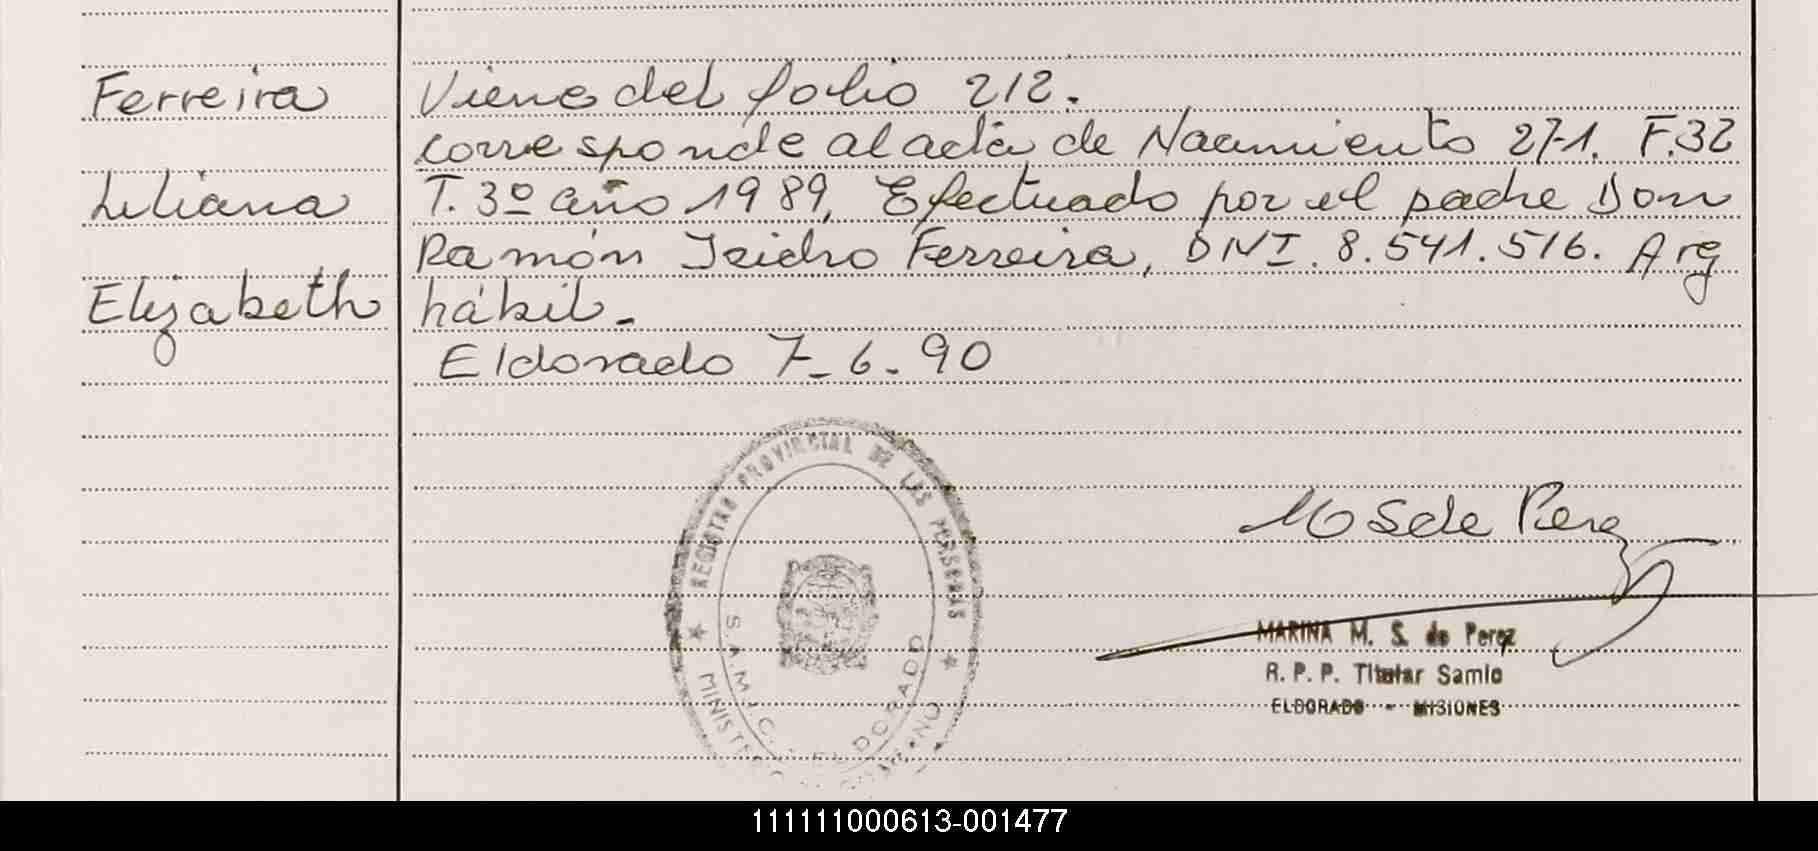 Ferreira
Liliana
Elizabeth
Viene del folio 212.
corresponde al acta de Nacimiento 271. F.32
T. 3º año 1989, Efectuado por el padre Don
Ramón Isidro Ferreira, DNI. 8.541.516. Arg
hábil.-
Eldorado 7-6-90
REGISTRO PROVINCIAL DE LAS PERSONAS
S.A.M.I.C. - ELDORADO
M S de Perez
MARINA M. S. de Perez
R. P. P. Titular Samic
ELDORADO - MISIONES
111111000613-001477